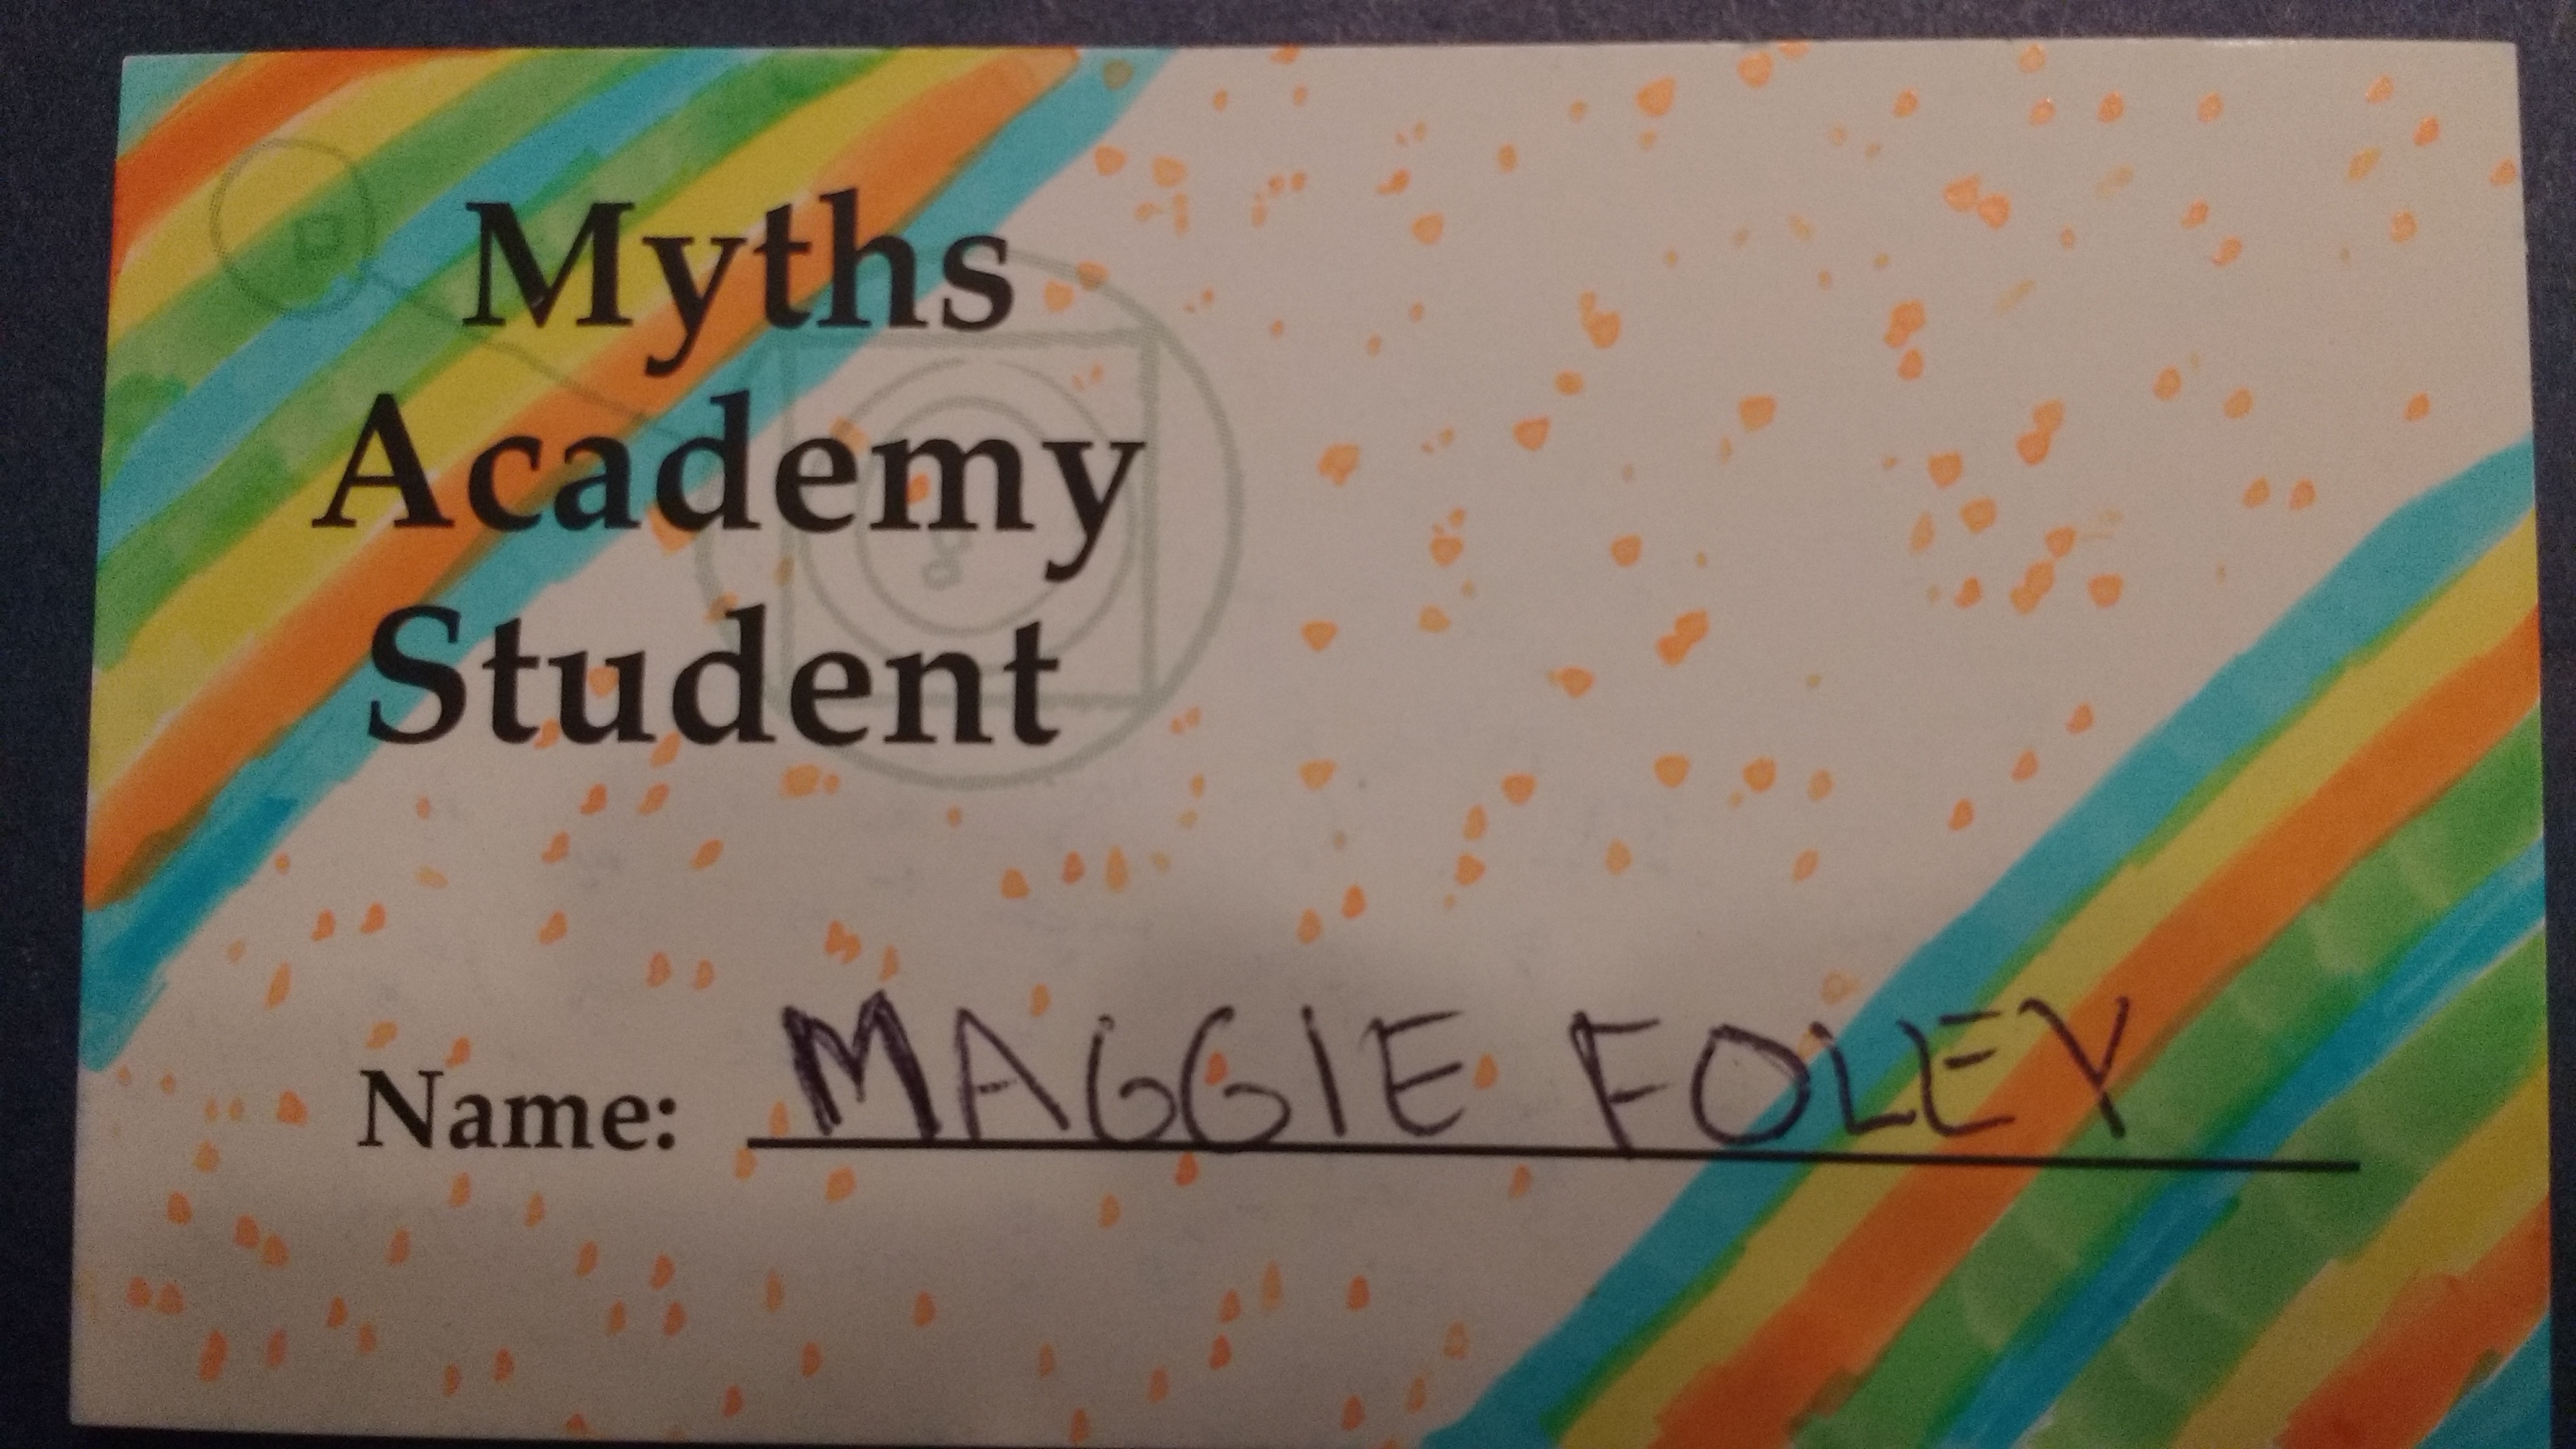 Myths
Academy
Student
Name: MAGGIE FOLEY